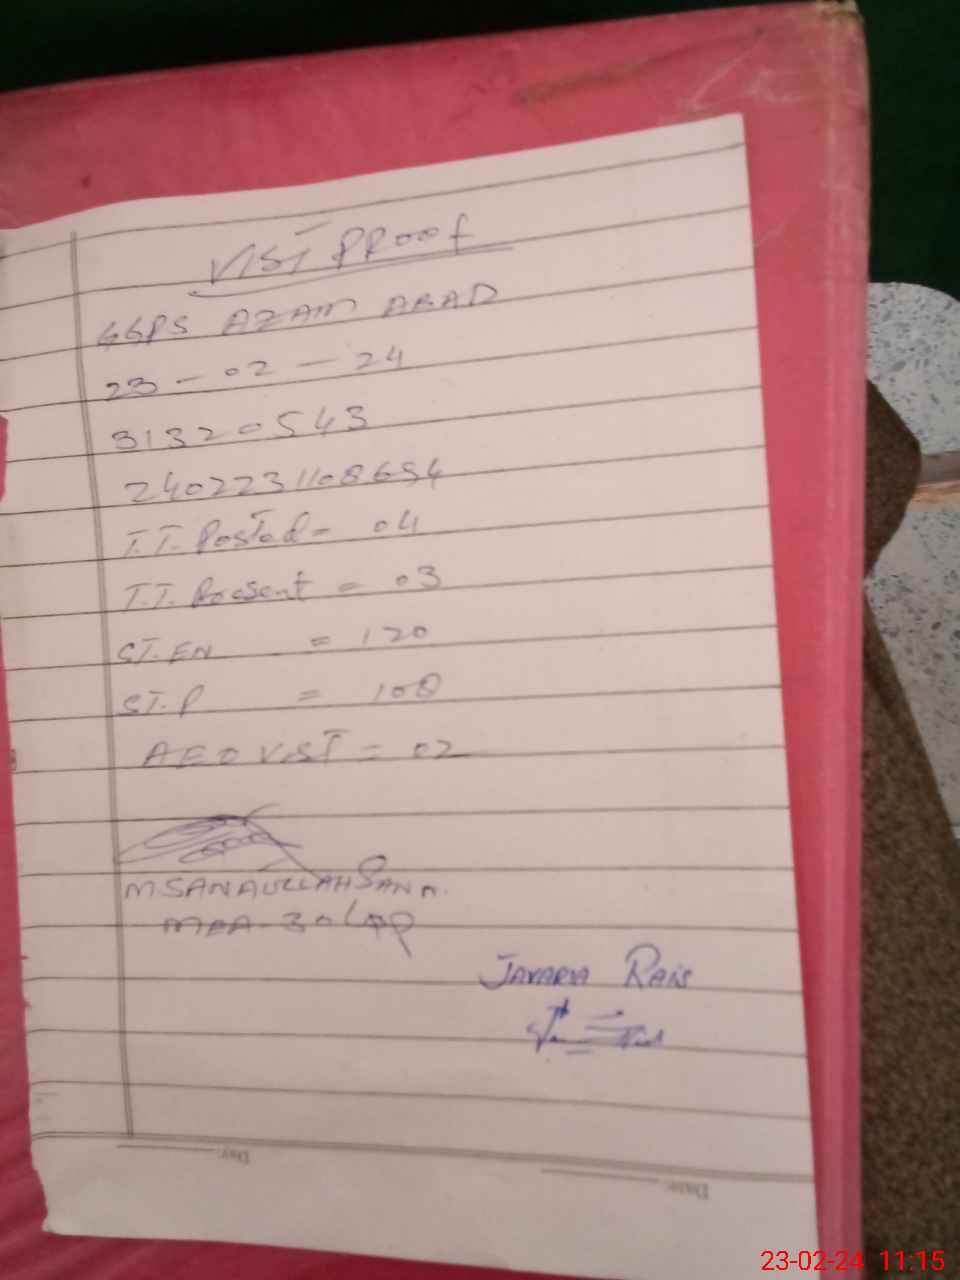 VIST PROOF
GGPS AZAM ABAD
23-02-24
31320543
2402231108654
T.T. Posted = 04
T.T. Present = 03
ST. EN = 120
ST. P = 108
AEO VIST = 02
M. SANAULLAH SANA
MEA-30
JAVARIA RAIS
Day:
Date:
23-02-24 11:15